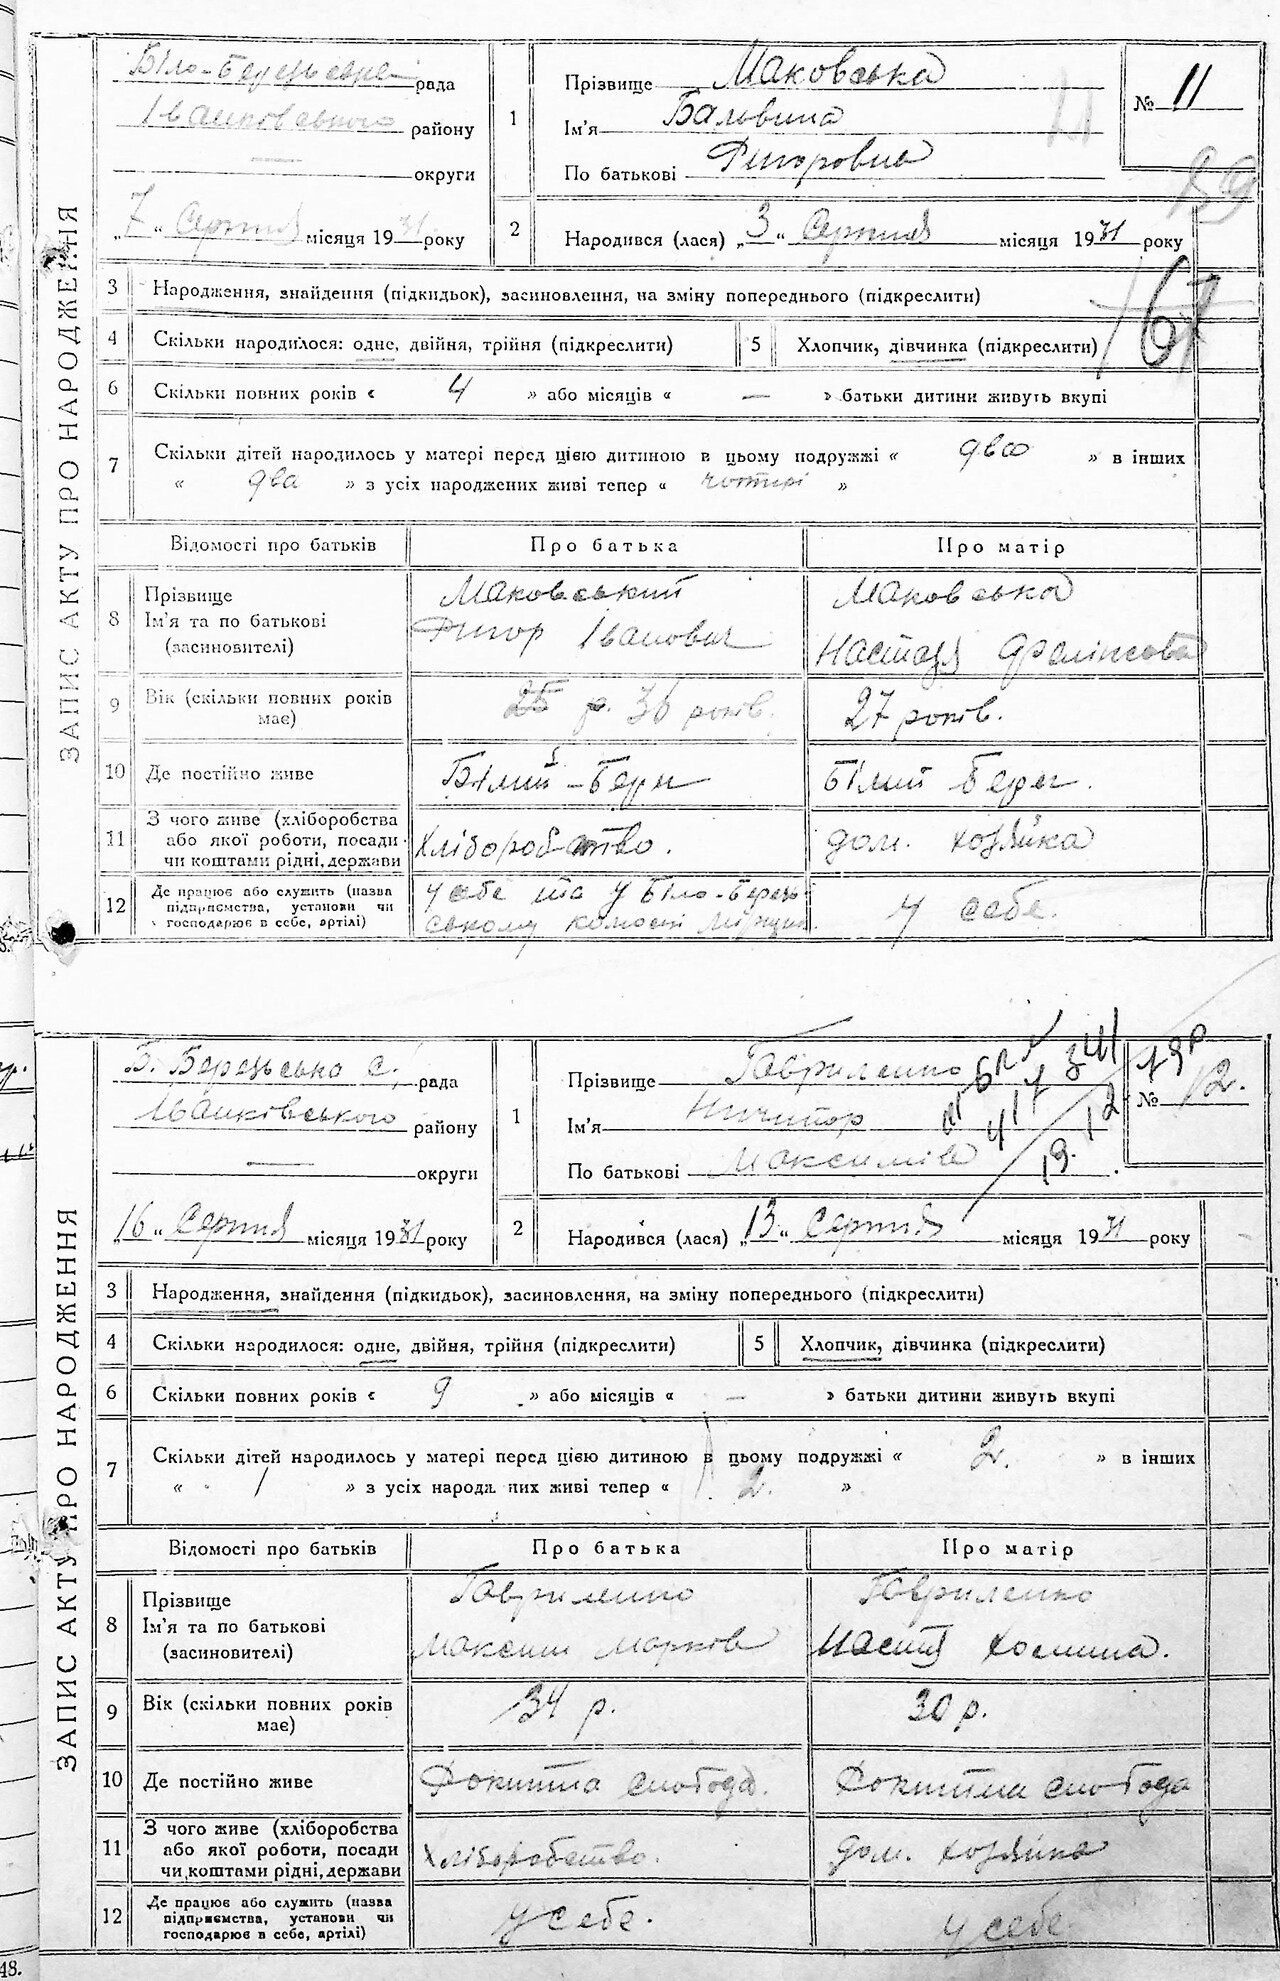 ЗАПИС АКТУ ПРО НАРОДЖЕННЯ
Біло-Березьська рада
Іванківського району
— округи
„7“ Серпня місяця 1931 року
1
Прізвище Маковська
Ім'я Бальвина
По батькові Григоровна
№ 11
89
2
Народився (лася) „3“ Серпня місяця 1931 року
67
3 Народження, знайдення (підкидьок), засиновлення, на зміну попереднього (підкреслити)
4 Скільки народилося: одне, двійня, трійня (підкреслити) 5 Хлопчик, дівчинка (підкреслити)
6 Скільки повних років « 4 » або місяців « — » батьки дитини живуть вкупі
7 Скільки дітей народилось у матері перед цією дитиною в цьому подружжі « два » в інших
« два » з усіх народжених живі тепер « чотирі »
Відомості про батьків Про батька Про матір
8 Прізвище Маковський Маковська
Ім'я та по батькові Григор Іванович Настася
(засиновителі)
9 Вік (скільки повних років має) 25 р. 36 років. 27 років.
10 Де постійно живе Білий-Берег Білий Берег.
11 З чого живе (хліборобства або якої роботи, посади чи коштами рідні, держави Хлібороб-ство. дом. хозяйка
12 Де працює або служить (назва підприємства, установи чи господарює в себе, артілі) У себе та у Біло-Березь-
ському у себе.
ЗАПИС АКТУ ПРО НАРОДЖЕННЯ
Б. Березьсько с. рада
Іванківського району
— округи
„16“ Серпня місяця 1931 року
1
Прізвище Гавриленко
Ім'я Ничипор
По батькові Максимів
№ 12.
2
Народився (лася) „13“ Серпня місяця 1931 року
3 Народження, знайдення (підкидьок), засиновлення, на зміну попереднього (підкреслити)
4 Скільки народилося: одне, двійня, трійня (підкреслити) 5 Хлопчик, дівчинка (підкреслити)
6 Скільки повних років « 9 » або місяців « — » батьки дитини живуть вкупі
7 Скільки дітей народилось у матері перед цією дитиною в цьому подружжі « 2. » в інших
« / » з усіх народжених живі тепер « 2. »
Відомості про батьків Про батька Про матір
8 Прізвище Гавриленко Гавриленко
Ім'я та по батькові Максим Марків Настя Хомина.
(засиновителі)
9 Вік (скільки повних років має) 34 р. 30 р.
10 Де постійно живе слобода. слобода
11 З чого живе (хліборобства або якої роботи, посади чи коштами рідні, держави Хліборобство. дом. хозяйка
12 Де працює або служить (назва підприємства, установи чи господарює в себе, артілі) у себе. у себе
48.